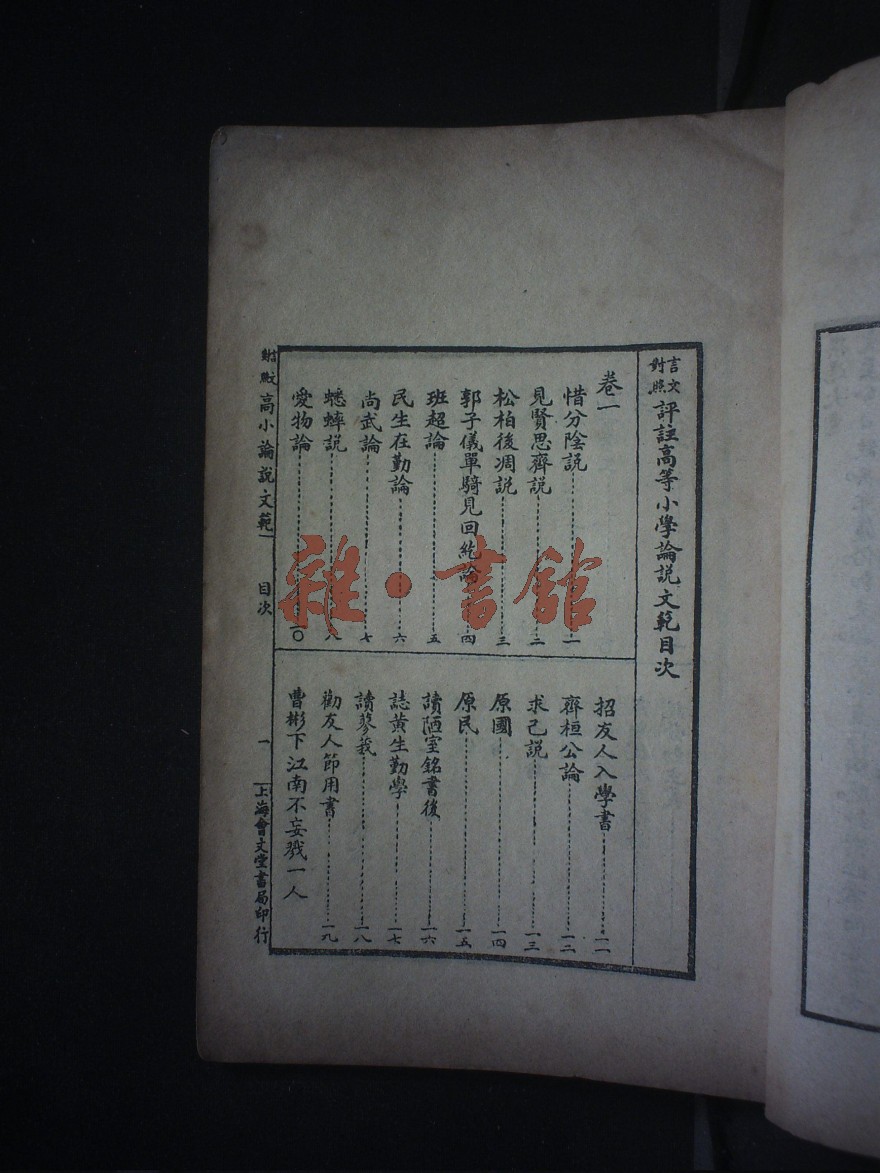 言文對照 評註高等小學論説文範目次
卷一
惜分陰説 一
見賢思齊説 二
松柏後凋説 三
郭子儀單騎見回紇論 四
班超論 五
民生在勤論 六
尚武論 七
蟋蟀説 八
愛物論 一〇
招友人入學書 一一
齊桓公論 一二
求己説 一三
原國 一四
原民 一五
讀陋室銘書後 一六
誌黃生勤學 一七
讀蓼莪 一八
勸友人節用書 一九
曹彬下江南不妄戮一人
言文對照 高小論説文範一 目次 一 上海會文堂書局印行
雜·書館